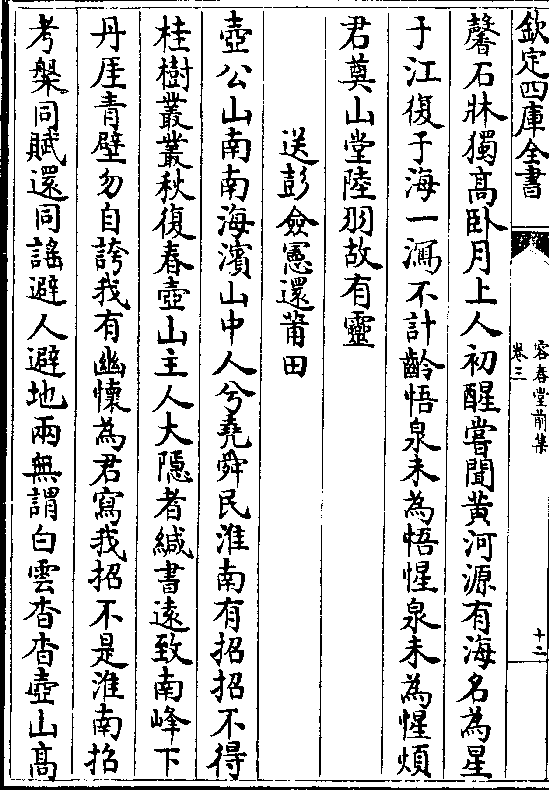 欽定四庫全書
容春堂前集
卷三
十二
馨石牀獨高卧月上人初醒嘗聞黄河源有海名為星
于江復于海一瀉不計齡悟泉未為悟惺泉未為惺煩
君奠山堂陸羽故有靈
送彭僉憲還莆田
壺公山南南海濱山中人兮堯舜民淮南有招招不得
桂樹叢叢秋復春壺山主人大隱者緘書遠致南峰下
丹厓青壁勿自誇我有幽懷為君寫我招不是淮南招
考槃同賦還同謠避人避地兩無謂白雲杳杳壺山高